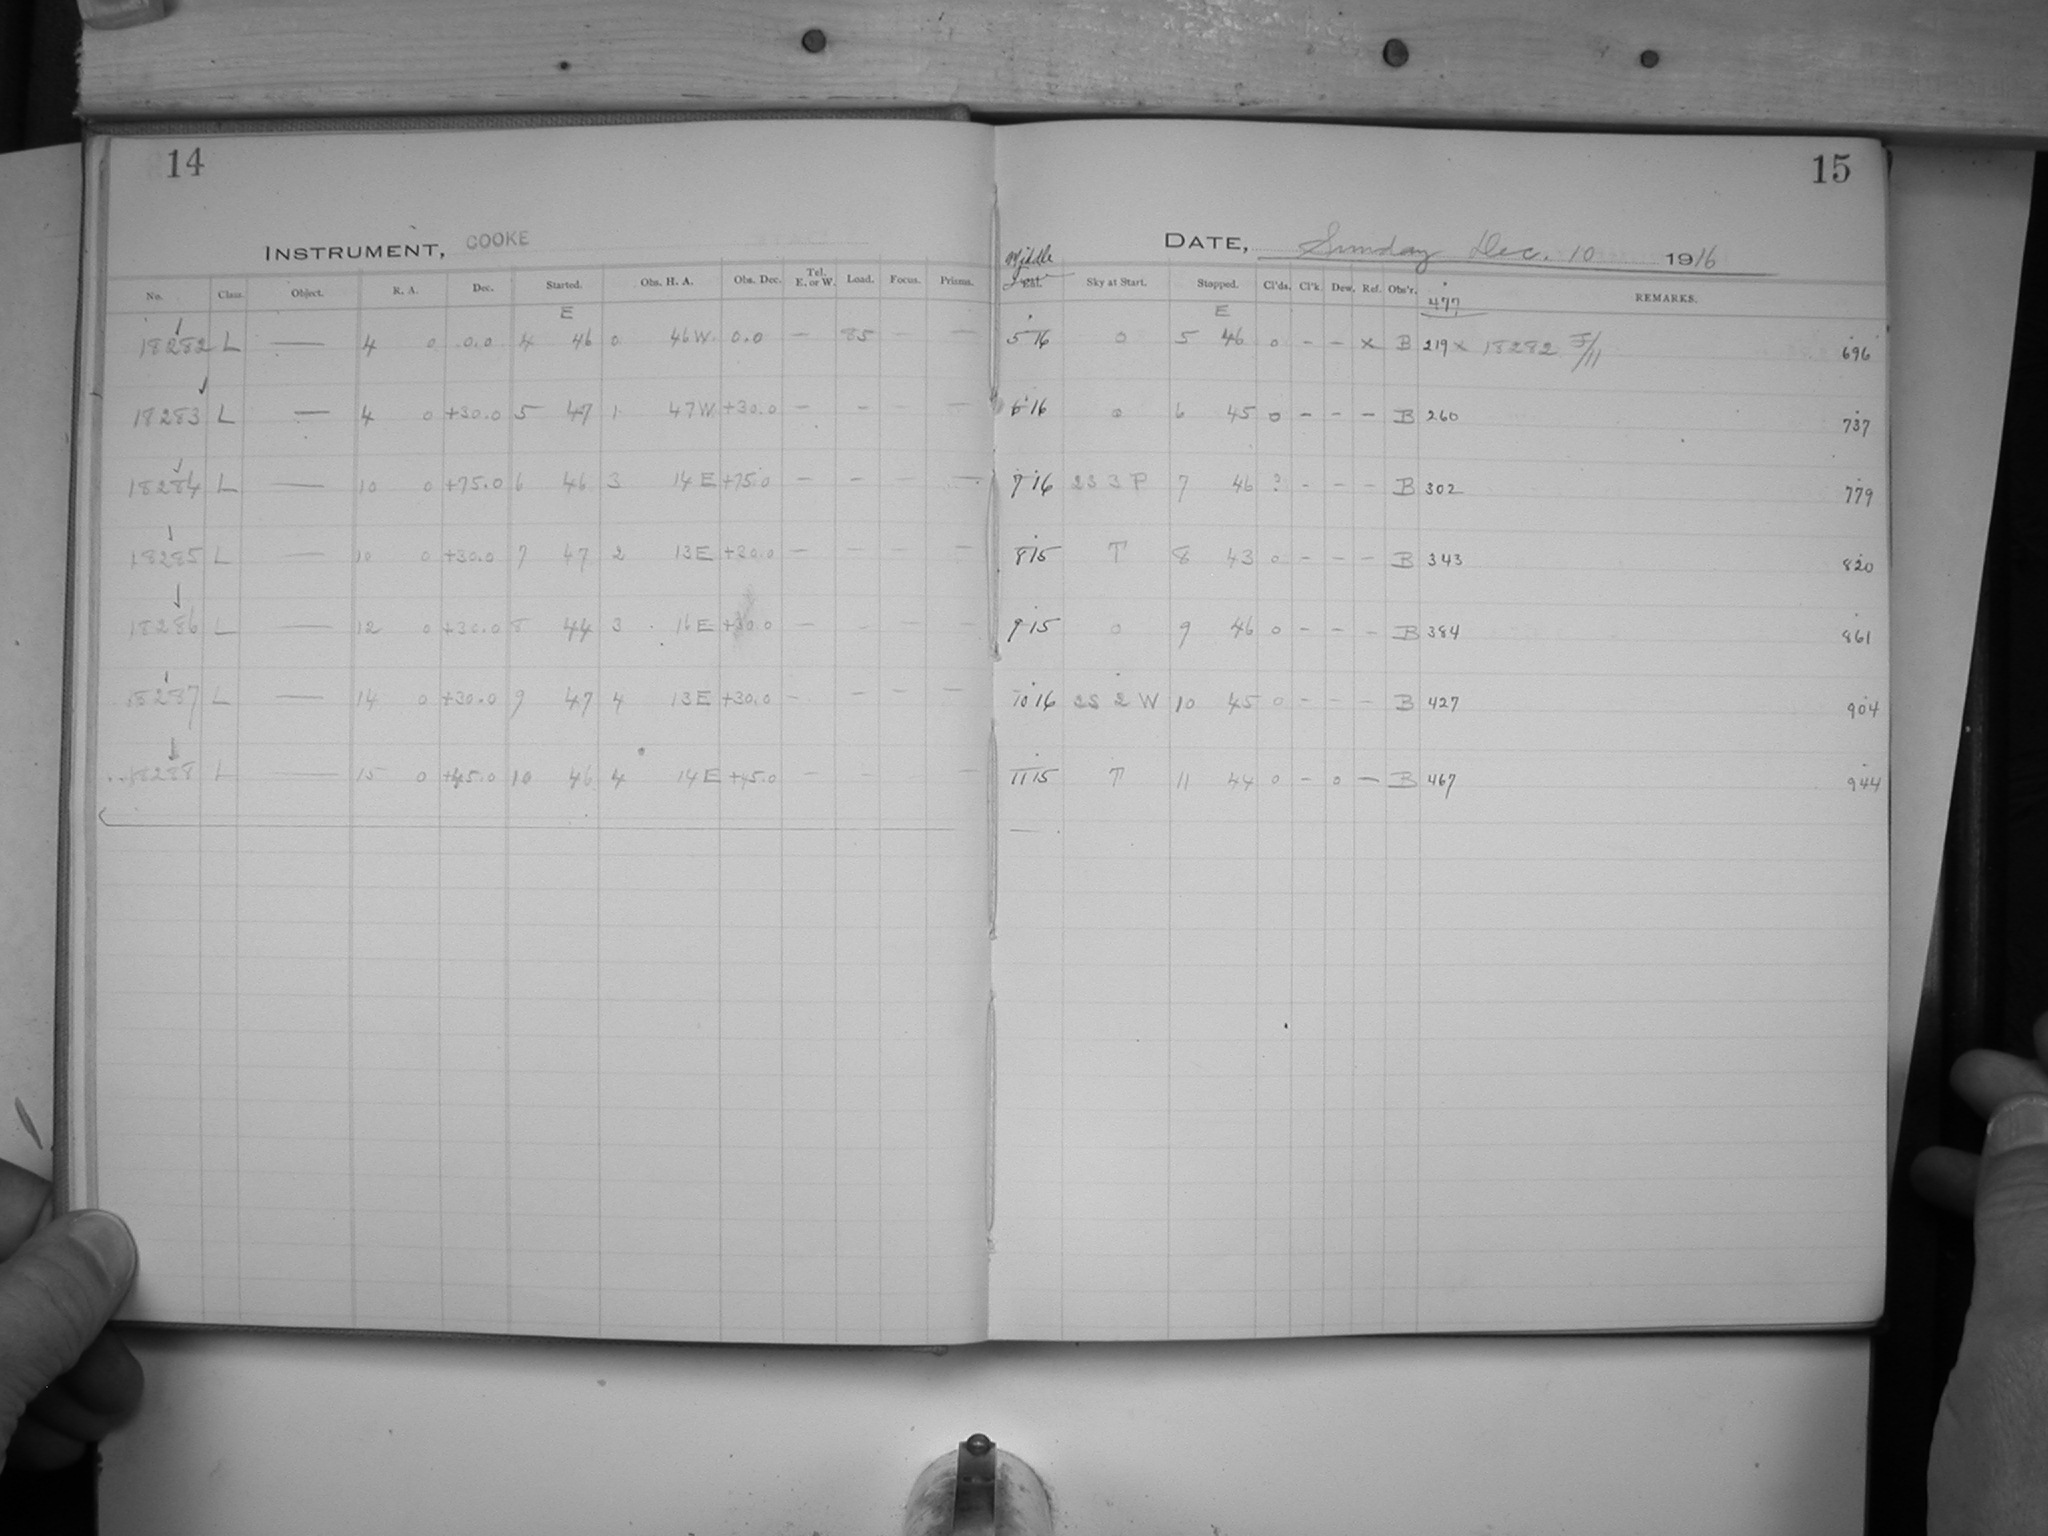 14
15
INSTRUMENT, COOKE
DATE, Sunday Dec. 10 1916
No. Class. Object. R. A. Dec. Started. Obs. H. A. Obs. Dec. Tel. E. or W. Load. Focus. Prisms. Middle Sky at Start. Stopped. Cl'ds. Cl'k. Dew. Ref. Obs'r. 477 REMARKS.
E E
18282 L — 4 0 0.0 4 46 0 46 W 0.0 — 85 — — 5 16 0 5 46 0 - - x B 219 x 18282 F/11 696
18283 L — 4 0 +30.0 5 47 1 47 W +30.0 — - — — 6 16 0 6 45 0 - - - B 260 737
18284 L — 10 0 +75.0 6 46 3 14 E +75.0 — - — — 7 16 2S 3 P 7 46 ? - - - B 302 779
18285 L — 10 0 +30.0 7 47 2 13 E +30.0 — - — — 8 15 T 8 43 0 - - - B 343 820
18286 L — 12 0 +30.0 8 44 3 16 E +30.0 — - — — 9 15 0 9 46 0 - - - B 384 861
18287 L — 14 0 +30.0 9 47 4 13 E +30.0 — - — — 10 16 2S 2 W 10 45 0 - - - B 427 904
18288 L — 15 0 +45.0 10 46 4 14 E +45.0 — — 11 15 T 11 44 0 - 0 — B 467 944